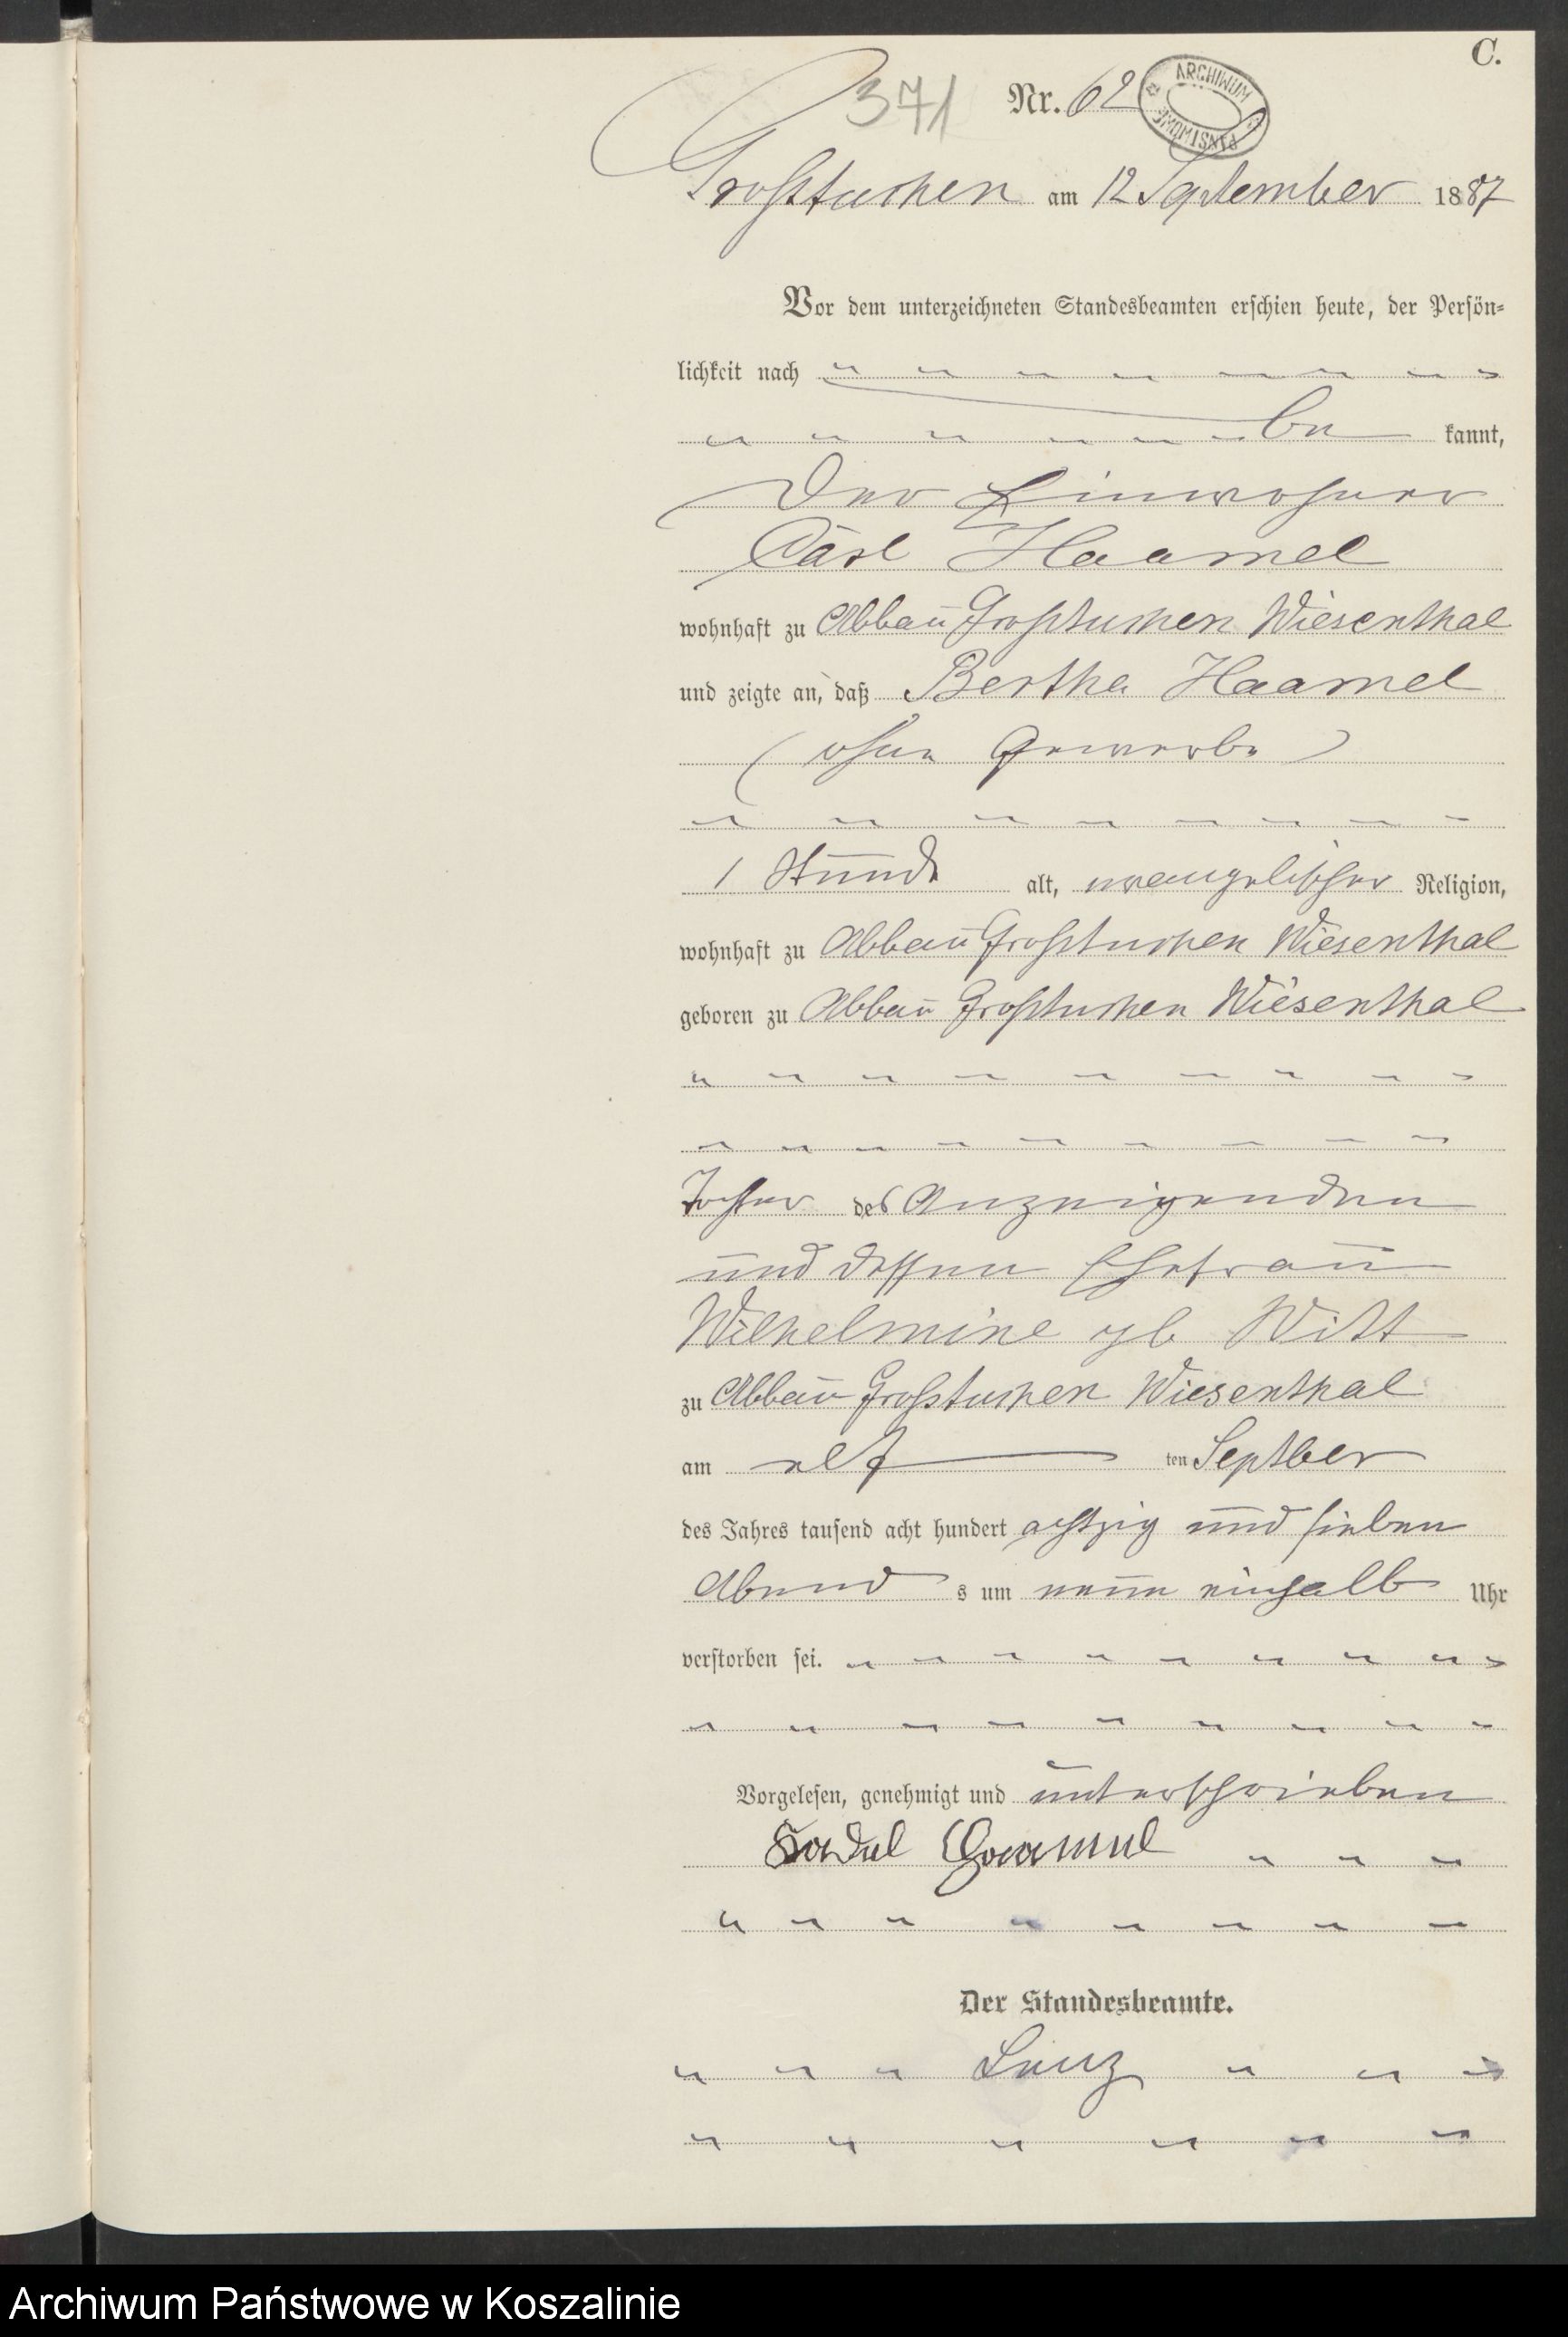 C.
371 Nr. 62
ARCHIWUM PAŃSTWOWE
Großtuchen am 12 September 1887
Vor dem unterzeichneten Standesbeamten erschien heute, der Persön-
lichkeit nach
be kannt,
der Einwohner
Carl Haamel
wohnhaft zu Abbau Großtuchen Wiesenthal
und zeigte an, daß Bertha Haamel
(ohne Gewerbe)
1 Stunde alt, evangelischer Religion,
wohnhaft zu Abbau Großtuchen Wiesenthal
geboren zu Abbau Großtuchen Wiesenthal
Tochter des Anzeigenden
und dessen Ehefrau
Wilhelmine gb Witt
zu Abbau Großtuchen Wiesenthal
am elf ten Septber
des Jahres tausend acht hundert achtzig und sieben
Abend s um neun einhalb Uhr
verstorben sei.
Vorgelesen, genehmigt und unterschrieben
Haamel
Der Standesbeamte.
Lenz
Archiwum Państwowe w Koszalinie